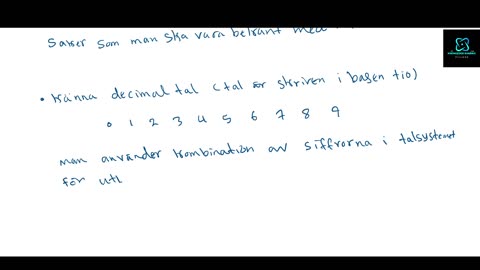 saker som man ska vara bekant med
• känna decimal tal (tal är skriven i basen tio)
0 1 2 3 4 5 6 7 8 9
man använder kombination av siffrorna i talsystemet
för utt